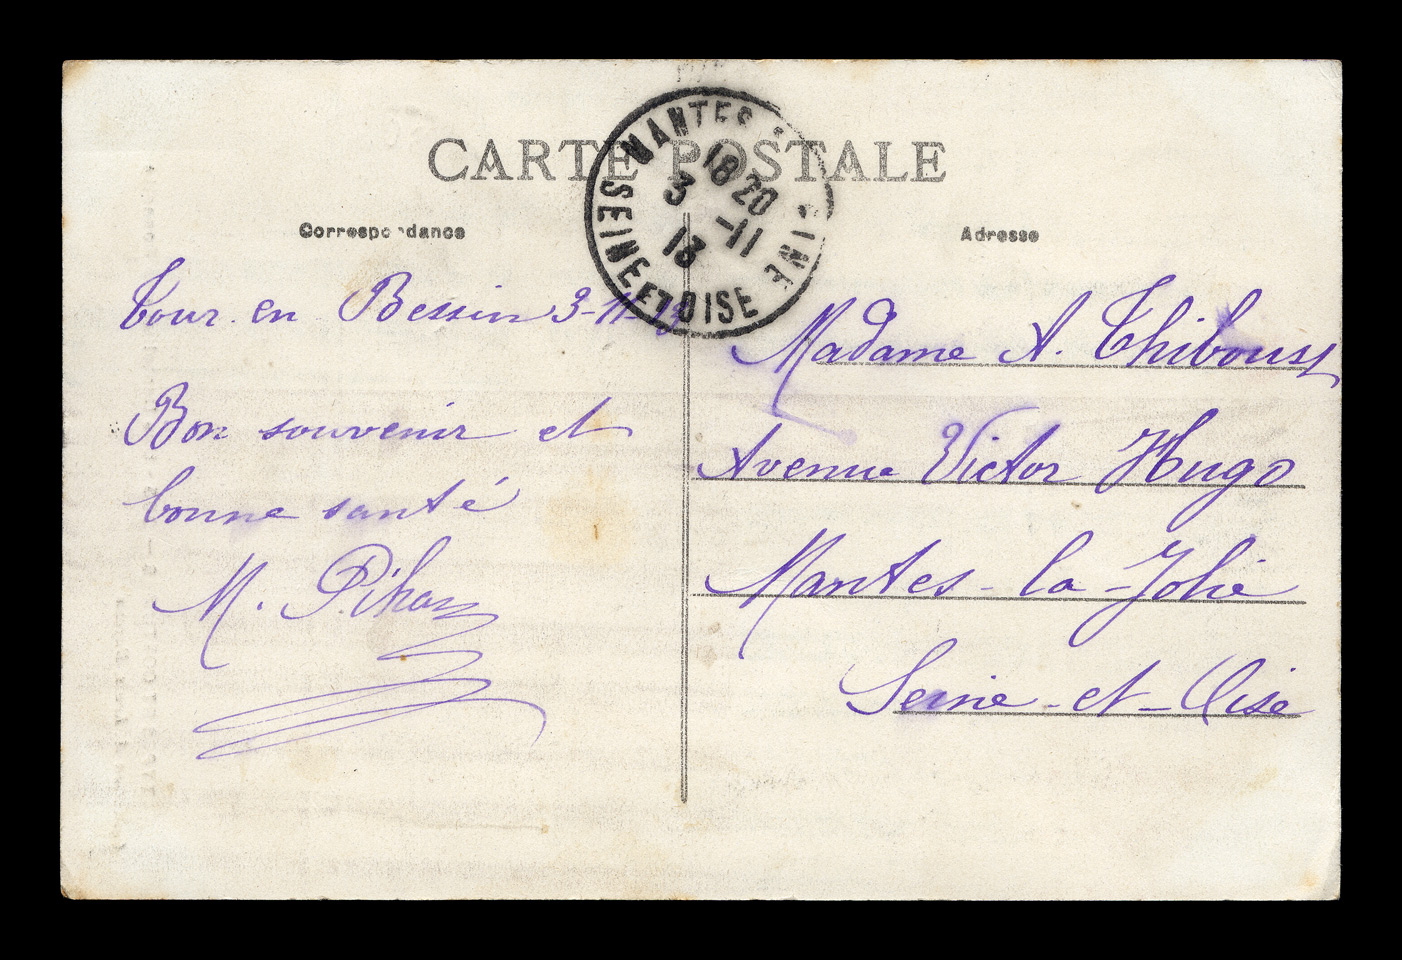 CARTE POSTALE
Correspondance
Adresse
MANTES
SEINE ET OISE
18 20
3 -11
13
Tour en Bessin 3-11-13
Bon souvenir et
bonne santé
M. Pihan
Madame A. Thiboust
Avenue Victor Hugo
Mantes-la-Jolie
Seine-et-Oise